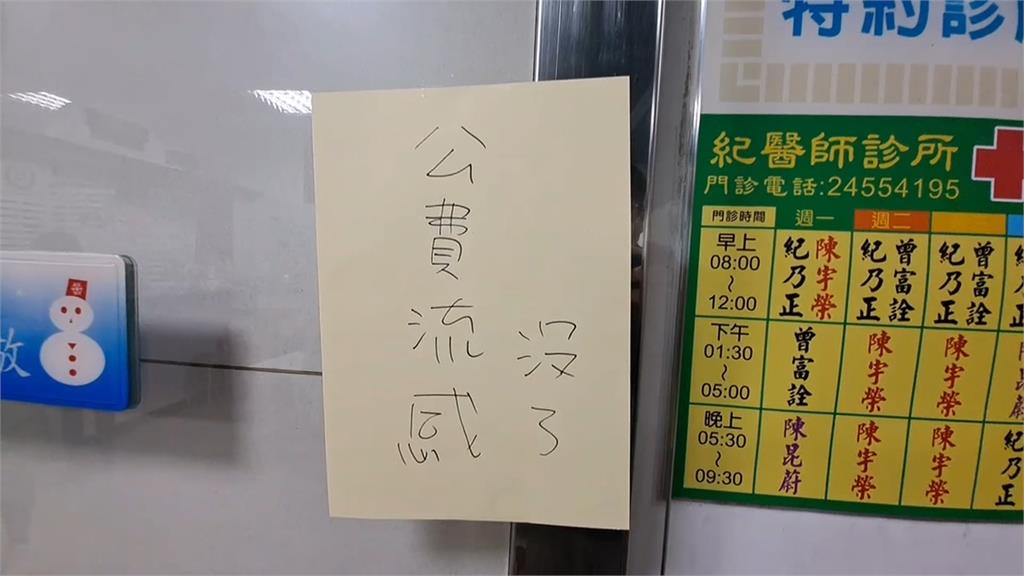 公費流感
沒了
放
特約診
紀醫師診所
門診電話:24554195
門診時間 週一 週二
早上 08:00 ~ 12:00 紀乃正 陳宇榮 紀乃正 曾富詮 紀乃正 曾富詮
下午 01:30 ~ 05:00 曾富詮 陳宇榮 陳宇榮
晚上 05:30 ~ 09:30 陳昆蔚 陳宇榮 陳宇榮 紀乃正